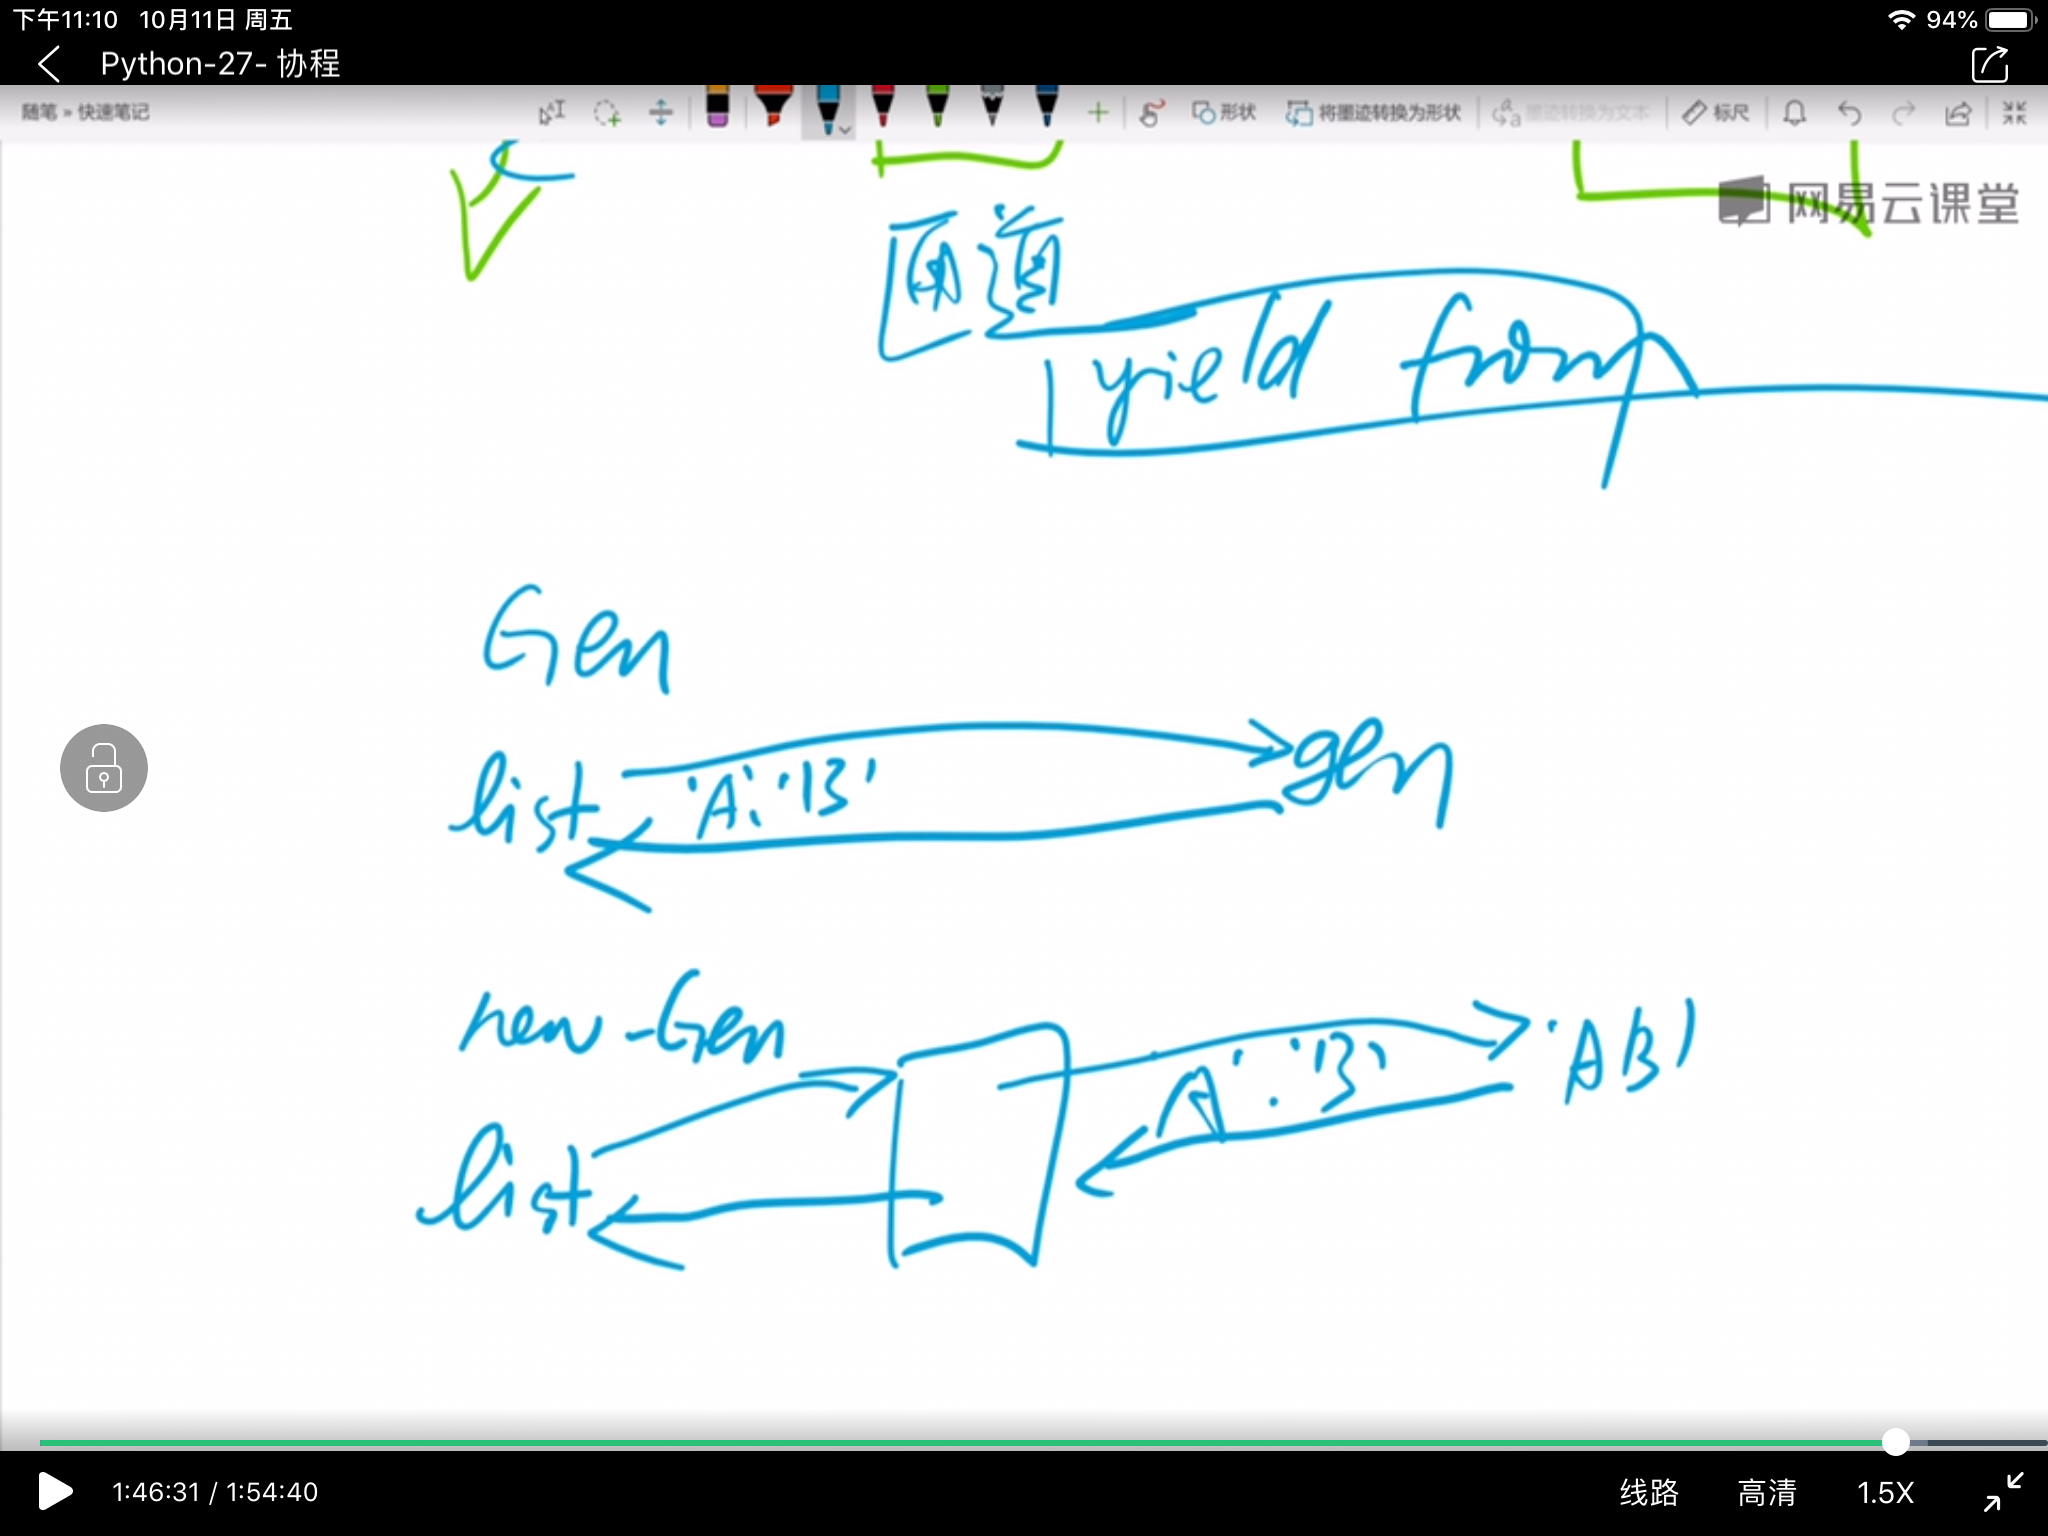 下午11:10 10月11日 周五 94%
Python-27- 协程
随笔 » 快速笔记 形状 将墨迹转换为形状 墨迹转换为文本 标尺
网易云课堂
yield from
Gen
list 'A' 'B' gen
new-Gen
list 'A' 'B' 'AB'
1:46:31 / 1:54:40 线路 高清 1.5X